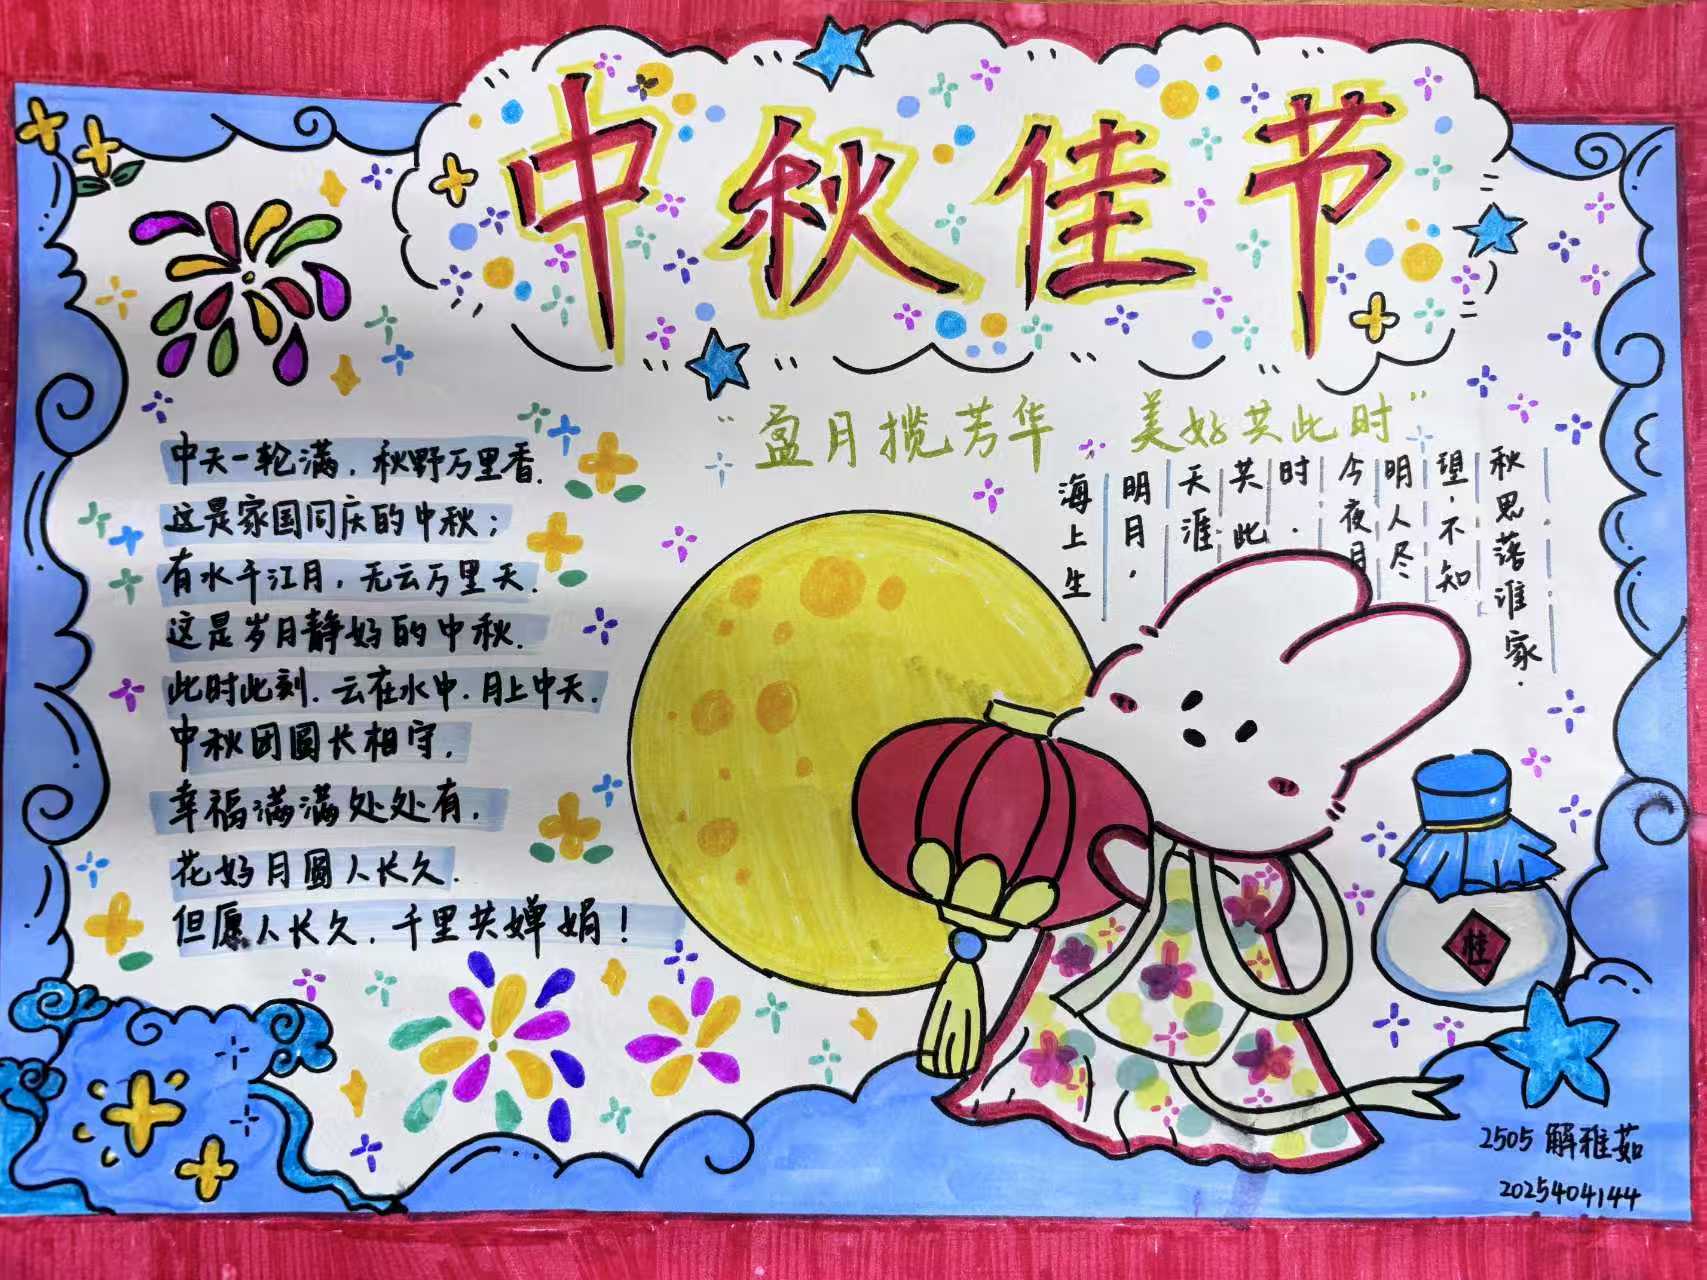 中秋佳节
“盈月揽芳华 美好共此时”
中天一轮满,秋野万里香.
这是家国同庆的中秋;
有水千江月,无云万里天.
这是岁月静好的中秋.
此时此刻.云在水中.月上中天.
中秋团圆长相守,
幸福满满处处有,
花好月圆人长久.
但愿人长久,千里共婵娟!
海上生
明月,
天涯
共此
时.
今夜月
明人尽
望,不知
秋思落谁家.
桂
2505 解雅茹
2025404144